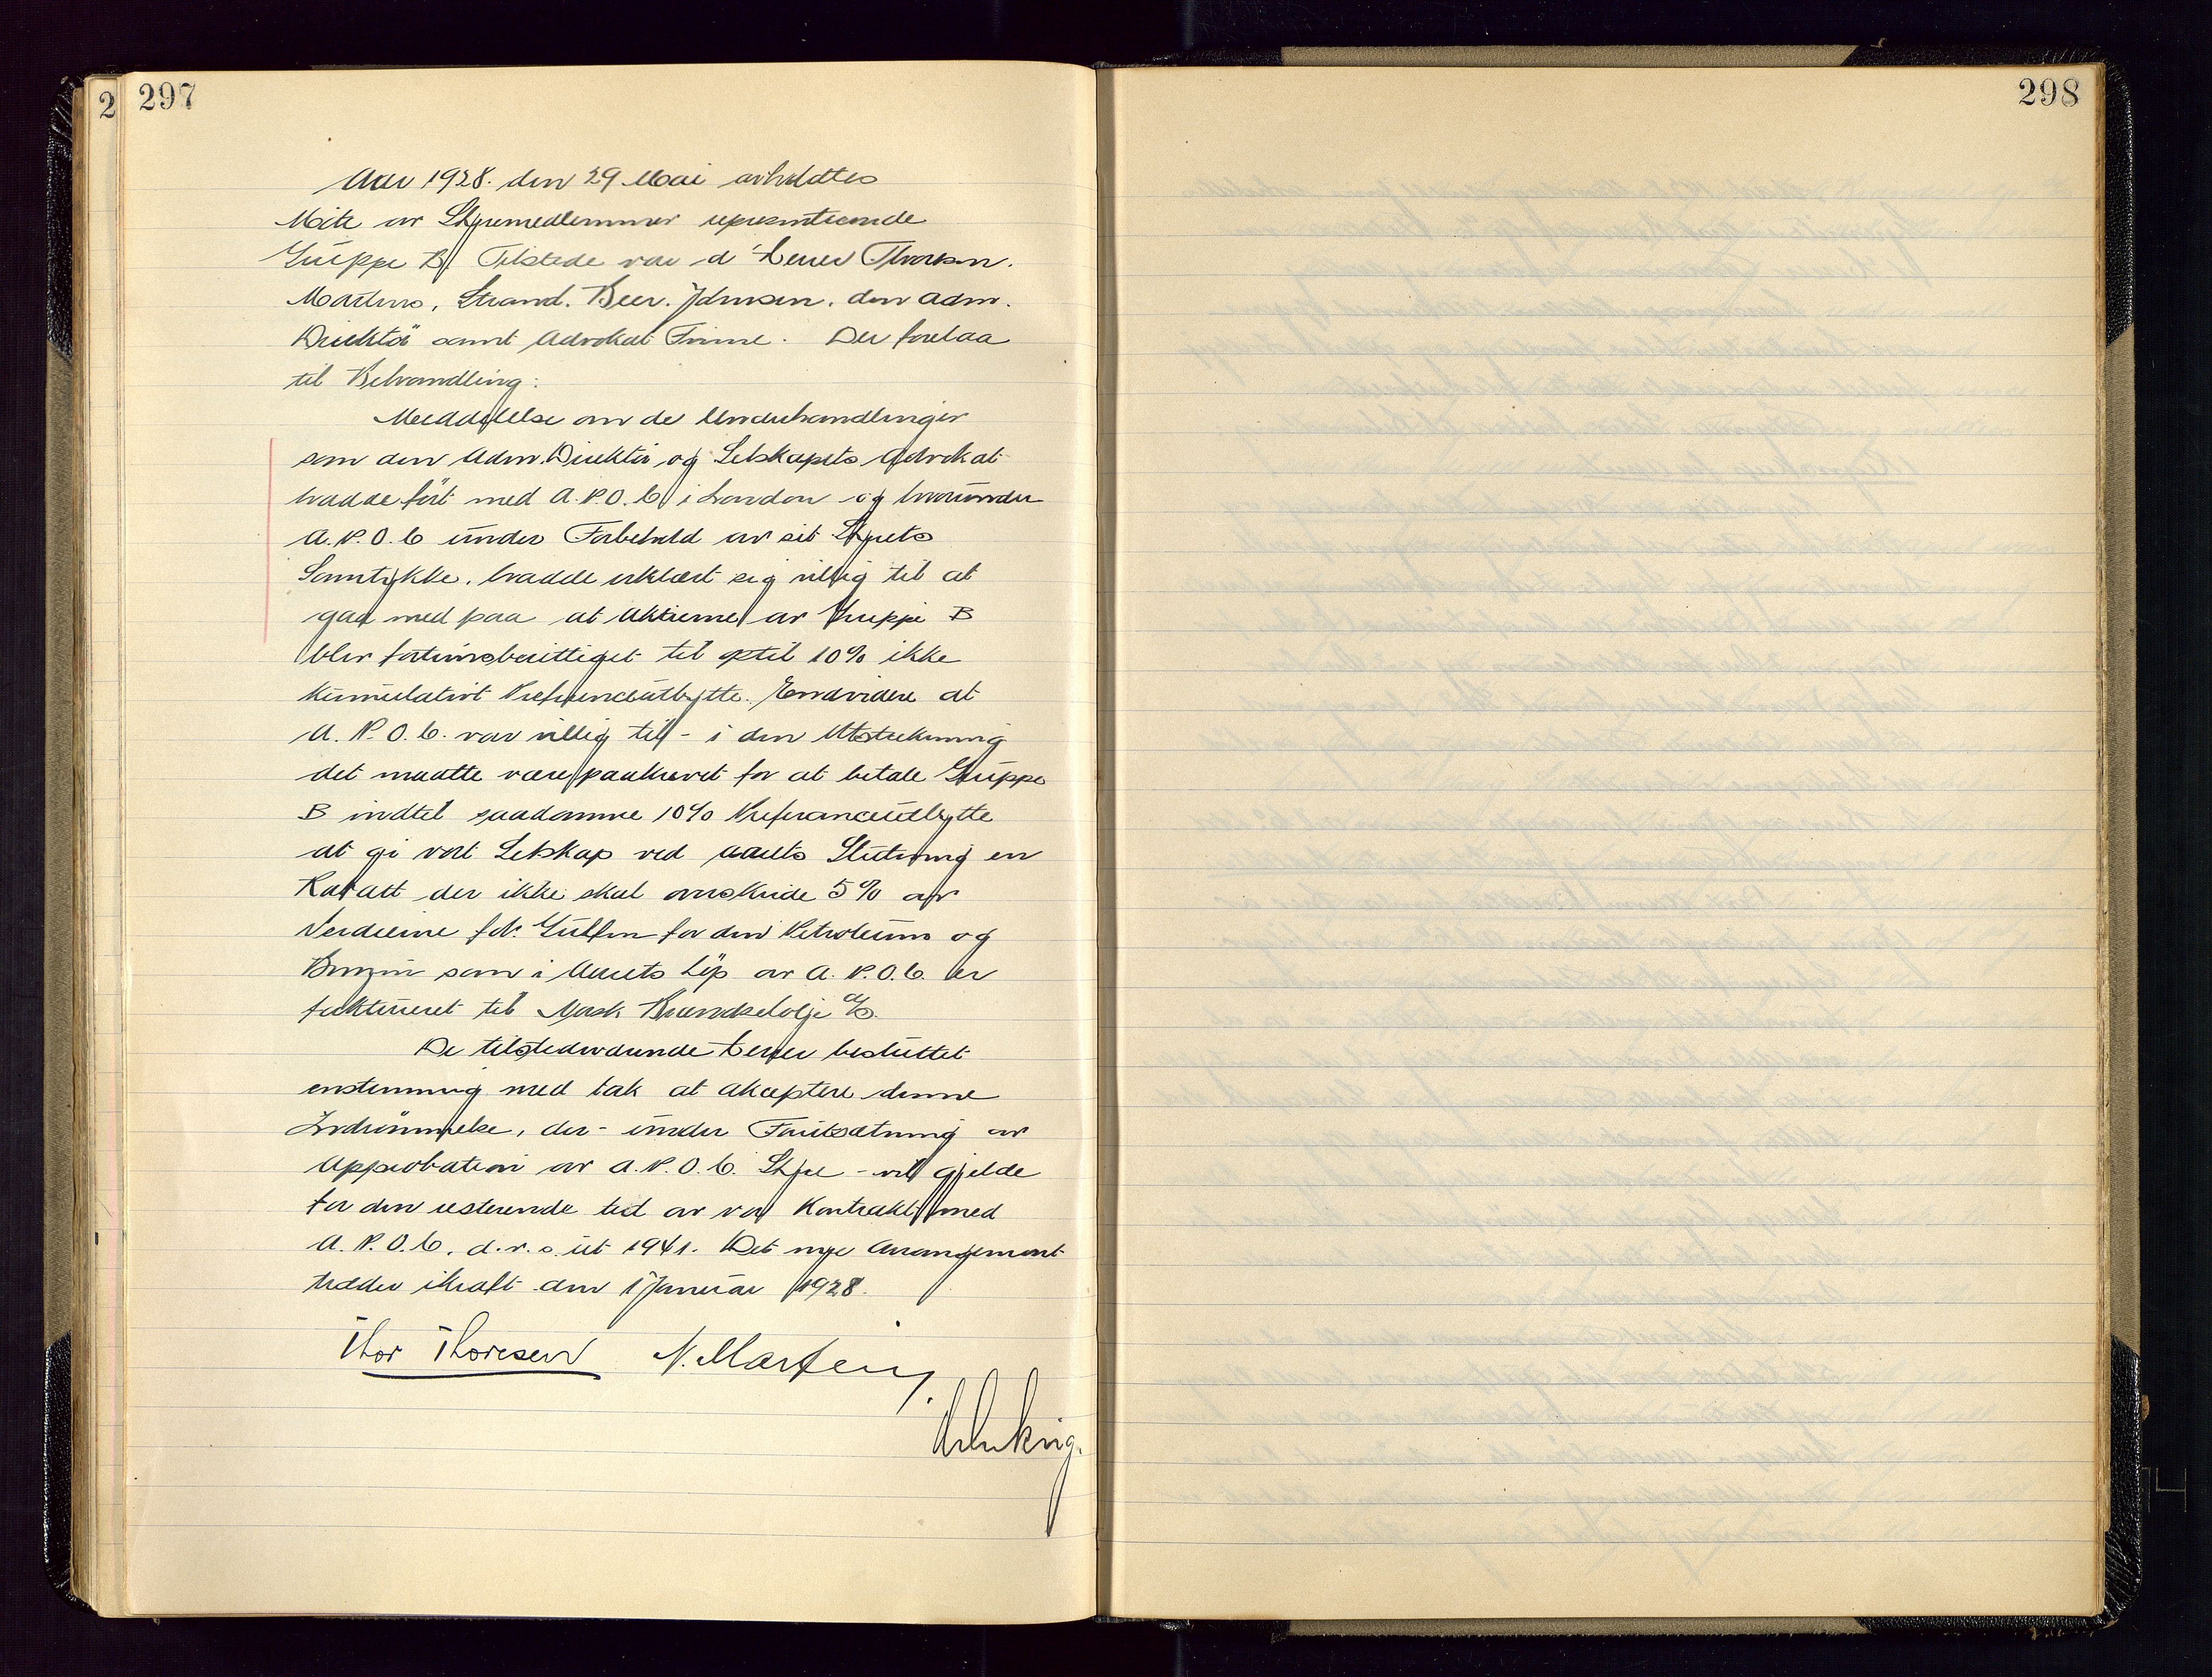 2
297
298
Aar 1928. den 29 Mai avholdtes
Möte av Styremedlemmer representerende
Gruppe B. Tilstede var d'Herrer Thoresen.
Martens, Strand. Beer. Johnsen. den adm.
Direktör samt Advokat Finne. Der forelaa
til Behandling:
Meddelelse om de Underhandlinger
som den Adm. Direktör og Selskapets Advokat
hadde fört med A.P.O.C. i London og hvorunder
A.P.O.C under Forbehold av sit Styrets
Samtykke, hadde erklært sig villig til at
gaa med paa at Aktierne av Gruppe B
blir fortrinsberettiget til optil 10% ikke
kumulativt Preferenceutbytte. Endvidere at
A.P.O.C. var villig til - i den Utstrekning
det maatte være paakrevet for at betale Gruppe
B indtil saadanne 10% Preferanceutbytte
at gi vort Selskap ved aarets Slutning en
Rabatt der ikke skal overskride 5% av
Verdierne fob. Gulfen for den Petroleum og
Benzin som i Aarets Löp av A.P.O.C. er
faktureret til Norsk Brændselolje A/S.
De tilstedeværende Herrer besluttet
enstemmig med tak at akceptere denne
Indrömmelse, der - under Forutsætning av
Approbation av A.P.O.C. Styre - vil gjelde
for den resterende tid av vor Kontrakt med
A.P.O.C. d.v.s. ut 1941. Det nye Arrangement
træder ikraft den 1 Januar 1928.
Thor Thoresen N. Martens.